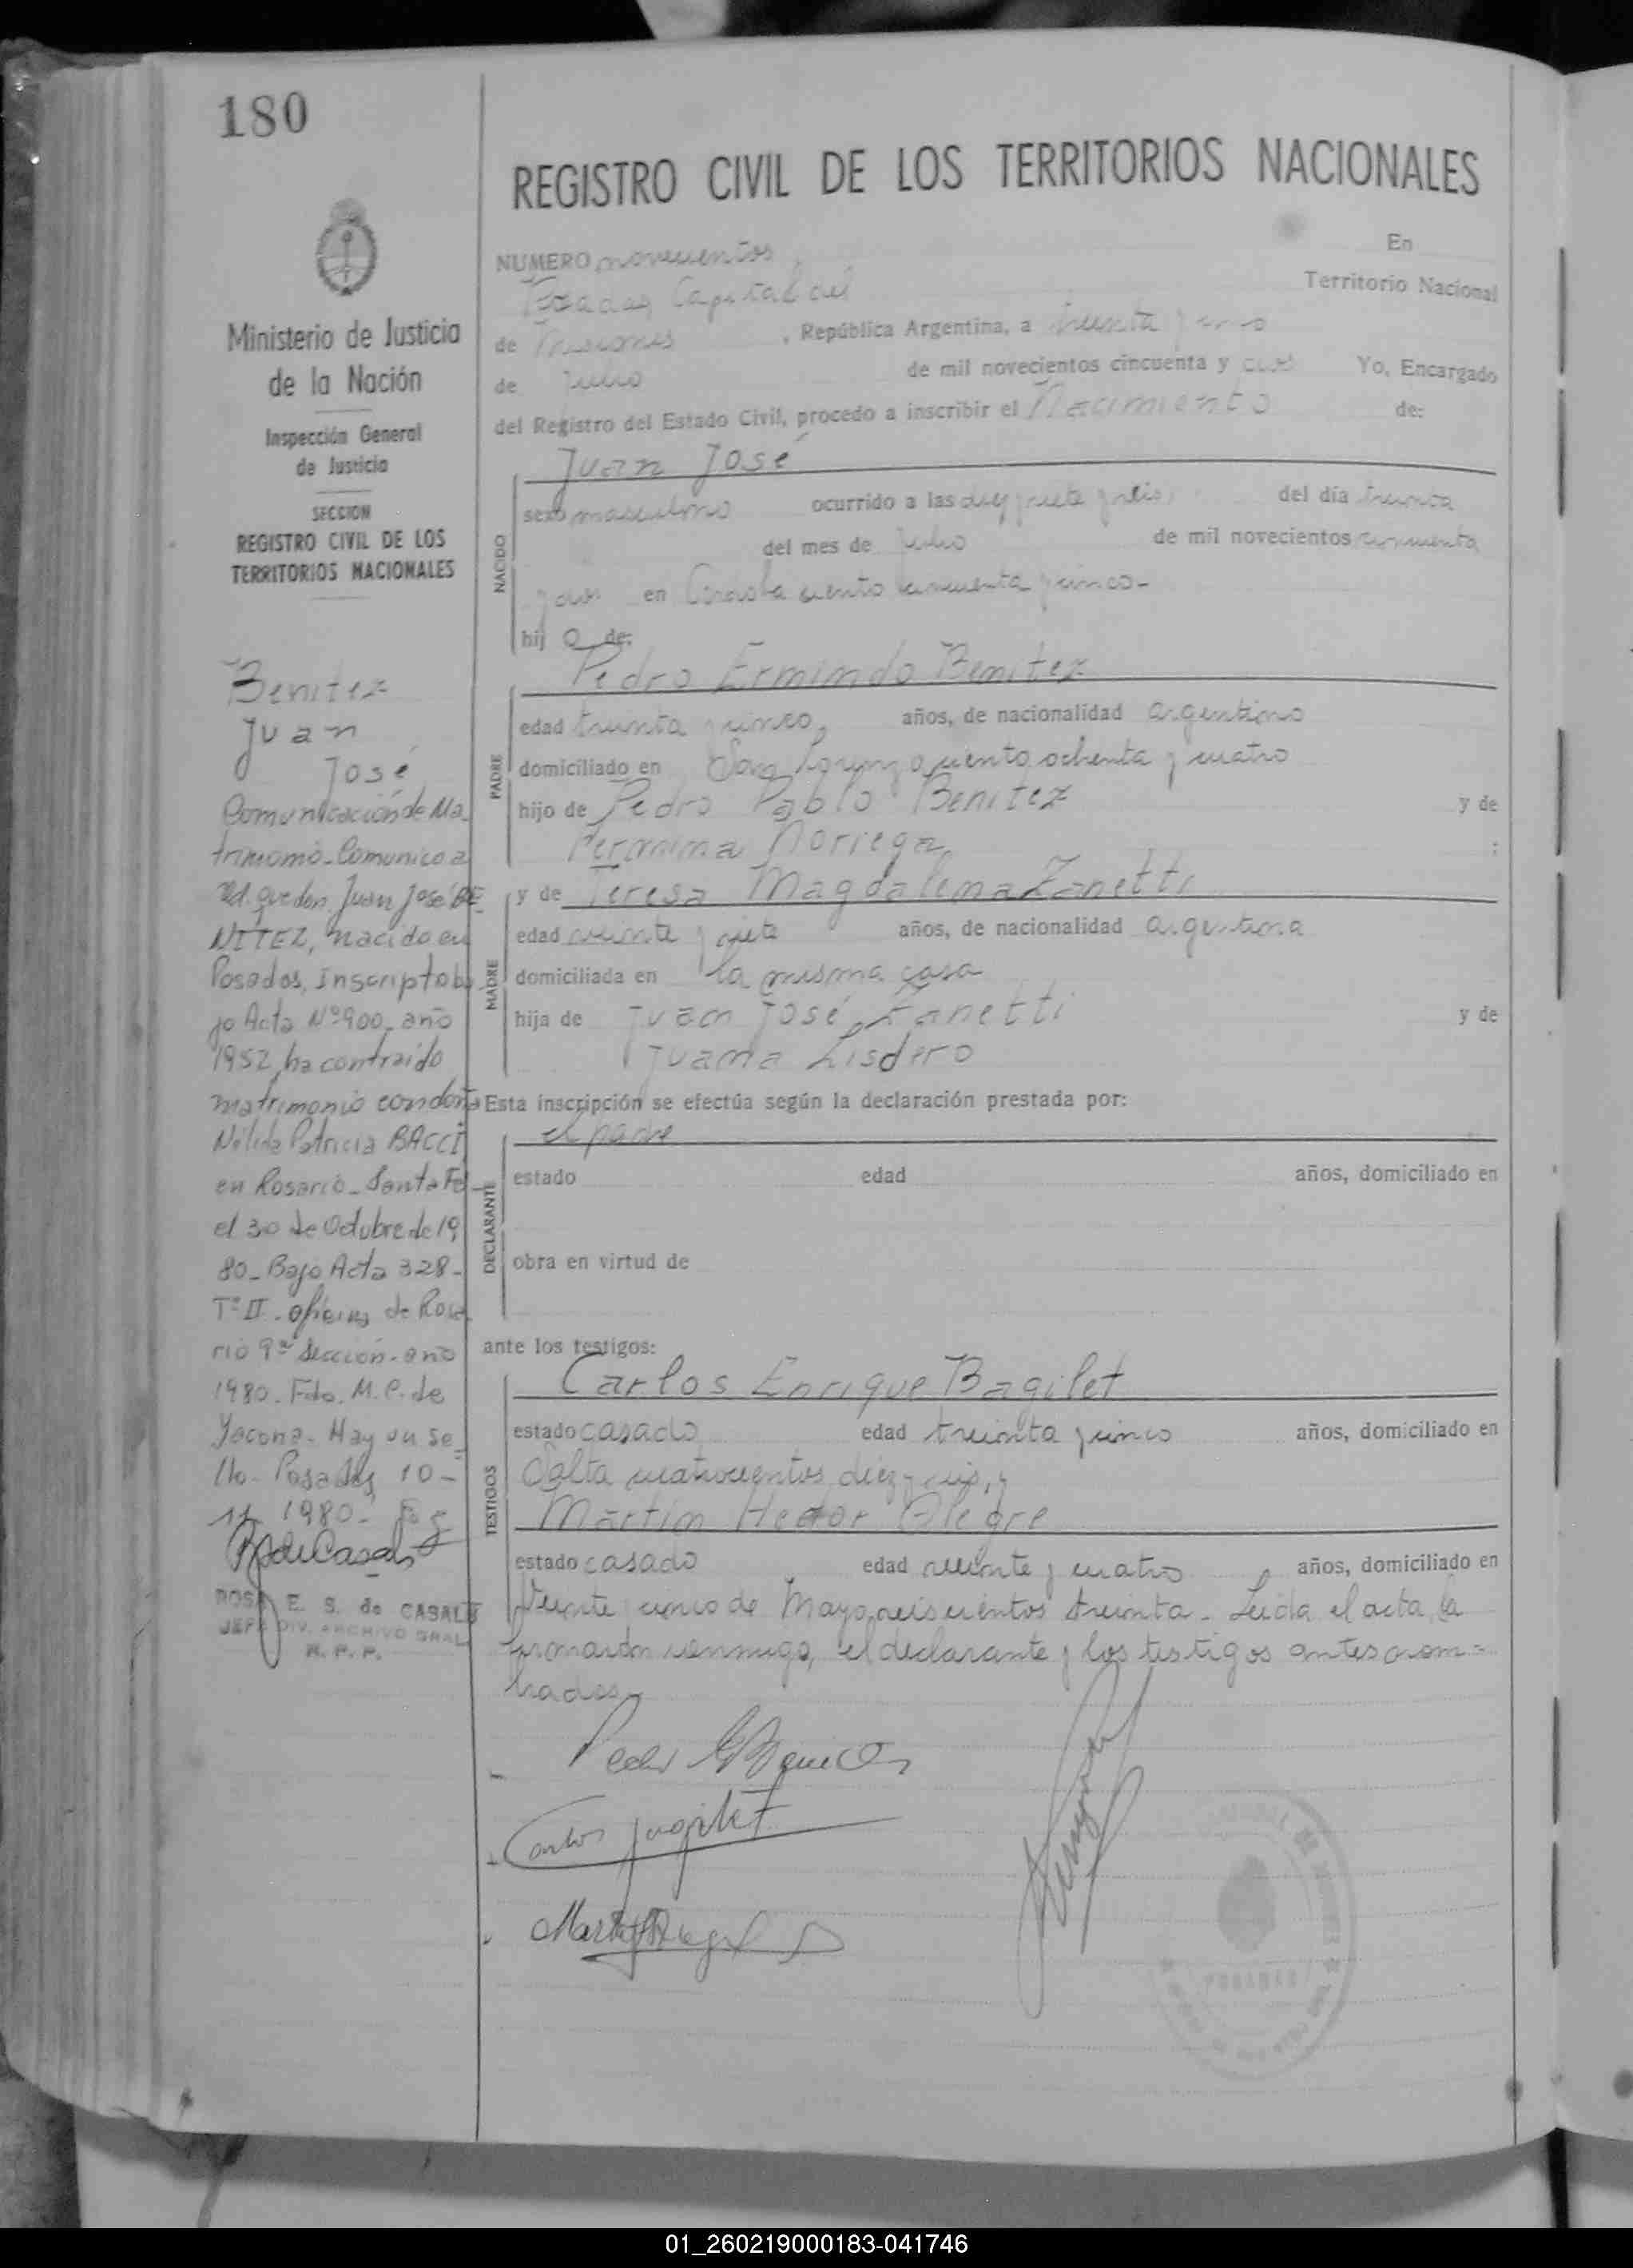 180
REGISTRO CIVIL DE LOS TERRITORIOS NACIONALES
Ministerio de Justicia
de la Nación
Inspección General
de Justicia
SECCION
REGISTRO CIVIL DE LOS
TERRITORIOS NACIONALES
Benitez
Juan
José
Comunicación de Ma-
trimonio - Comunico a
Ud. que don Juan José BE-
NITEZ, nacido en
Posadas, Inscripto ba-
jo Acta Nº 900 - año
1952, ha contraido
matrimonio con doña
Nélida Patricia BACCI
en Rosario - Santa Fe -
el 30 de Octubre de 19
80 - Bajo Acta 328 -
Tº II - oficina de Rosa
rio 9ª Sección - año
1980 - Fdo. M. C. de
Yacona - Hay un se-
llo - Posadas 10 -
11 - 1980 -
ROSA E. S. de CASALS
JEFA DIV. ARCHIVO GRAL
R. P. P.
NUMERO novecientos En
Posadas, Capital del Territorio Nacional
de Misiones , República Argentina, a treinta y uno
de Julio de mil novecientos cincuenta y dos Yo, Encargado
del Registro del Estado Civil, procedo a inscribir el Nacimiento de:
NACIDO
Juan José
sexo masculino ocurrido a las diez y siete y del día treinta
del mes de Julio de mil novecientos cincuenta
y dos en Córdoba ciento cincuenta y cinco -
hij o de:
PADRE
Pedro Ermindo Benitez
edad treinta y cinco, años, de nacionalidad argentino
domiciliado en San Lorenzo ciento ochenta y cuatro
hijo de Pedro Pablo Benitez y de
Fermina Noriega :
MADRE
y de Teresa Magdalena Zanetti
edad veinte y siete años, de nacionalidad argentina
domiciliada en la misma casa
hija de Juan José Zanetti y de
Juana Lisdero
Esta inscripción se efectúa según la declaración prestada por:
DECLARANTE
el padre
estado edad años, domiciliado en
obra en virtud de
ante los testigos:
TESTIGOS
Carlos Enrique Bagilet
estado casado edad treinta y cinco años, domiciliado en
Salta cuatrocientos diez y seis, y
Martin Hector Alegre
estado casado edad veinte y cuatro años, domiciliado en
Veinte cinco de Mayo seiscientos treinta - Leida el acta, la
firmaron conmigo, el declarante y los testigos antes nom=
brados.
POSADAS
01_260219000183-041746